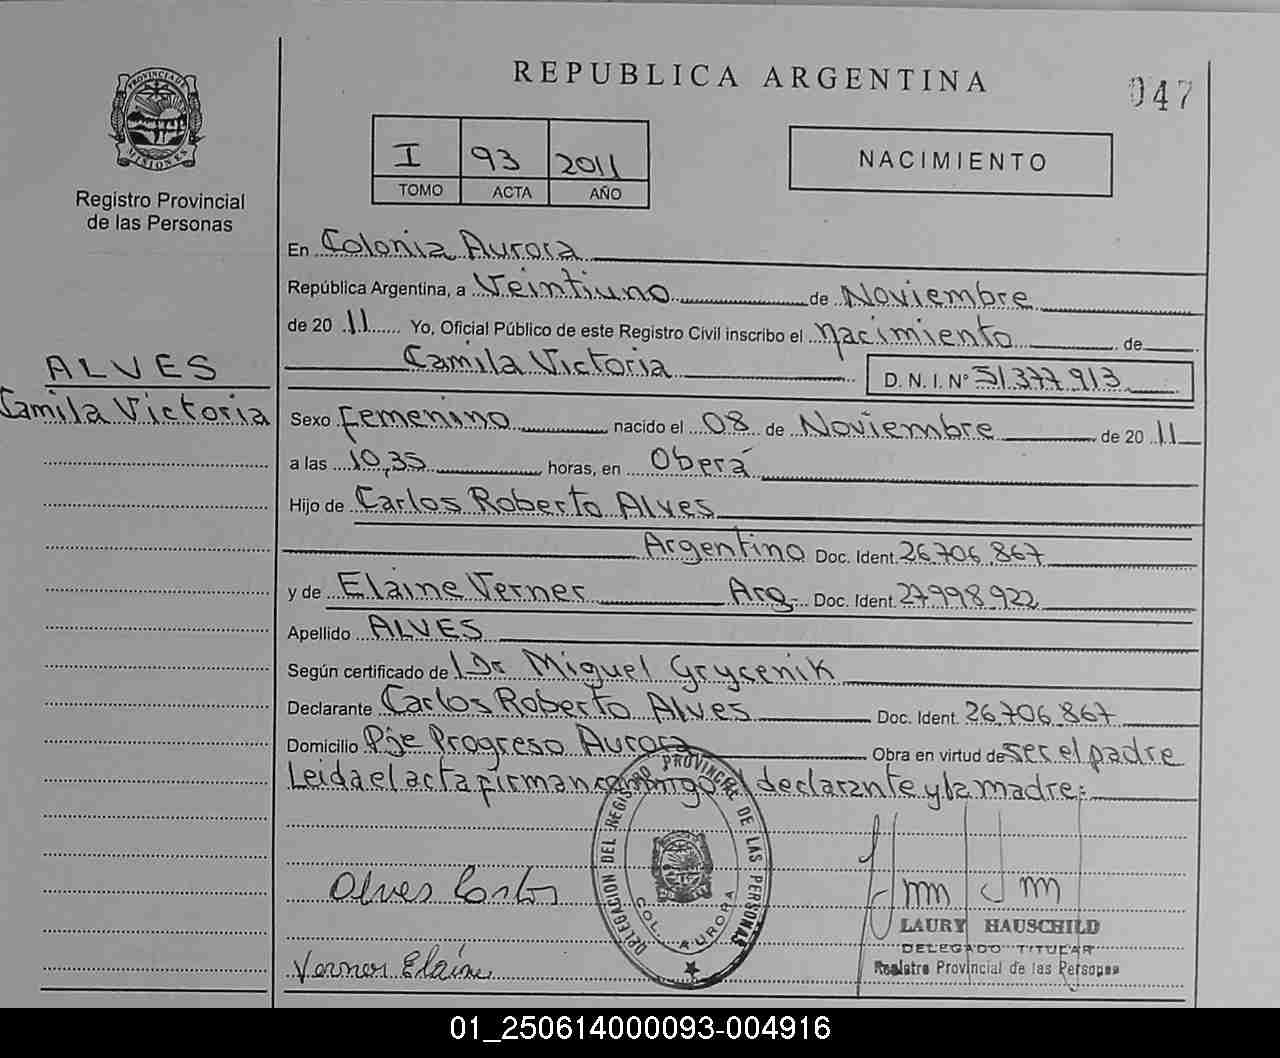 PROVINCIA DE
MISIONES
Registro Provincial
de las Personas
ALVES
Camila Victoria
REPUBLICA ARGENTINA
047
I 93 2011
TOMO ACTA AÑO
NACIMIENTO
En Colonia Aurora
República Argentina, a Veintiuno de Noviembre
de 2011 Yo, Oficial Público de este Registro Civil inscribo el Nacimiento de
Camila Victoria D. N. I. Nº 51 377 913
Sexo Femenino nacido el 08 de Noviembre de 2011
a las 10,35 horas, en Oberá
Hijo de Carlos Roberto Alves
Argentino Doc. Ident. 26.706.867
y de Elaine Verner Arg. Doc. Ident. 27998922
Apellido ALVES
Según certificado de Dr Miguel Grycenik
Declarante Carlos Roberto Alves Doc. Ident. 26.706.867
Domicilio Pje Progreso Aurora Obra en virtud de ser el padre
Leida el acta firman conmigo el declarante y la madre:
DELEGACION DEL REGISTRO PROVINCIAL DE LAS PERSONAS
COL. AURORA
Alves Carlos
LAURY HAUSCHILD
DELEGADO TITULAR
Registro Provincial de las Personas
Verner Elaine
01_250614000093-004916